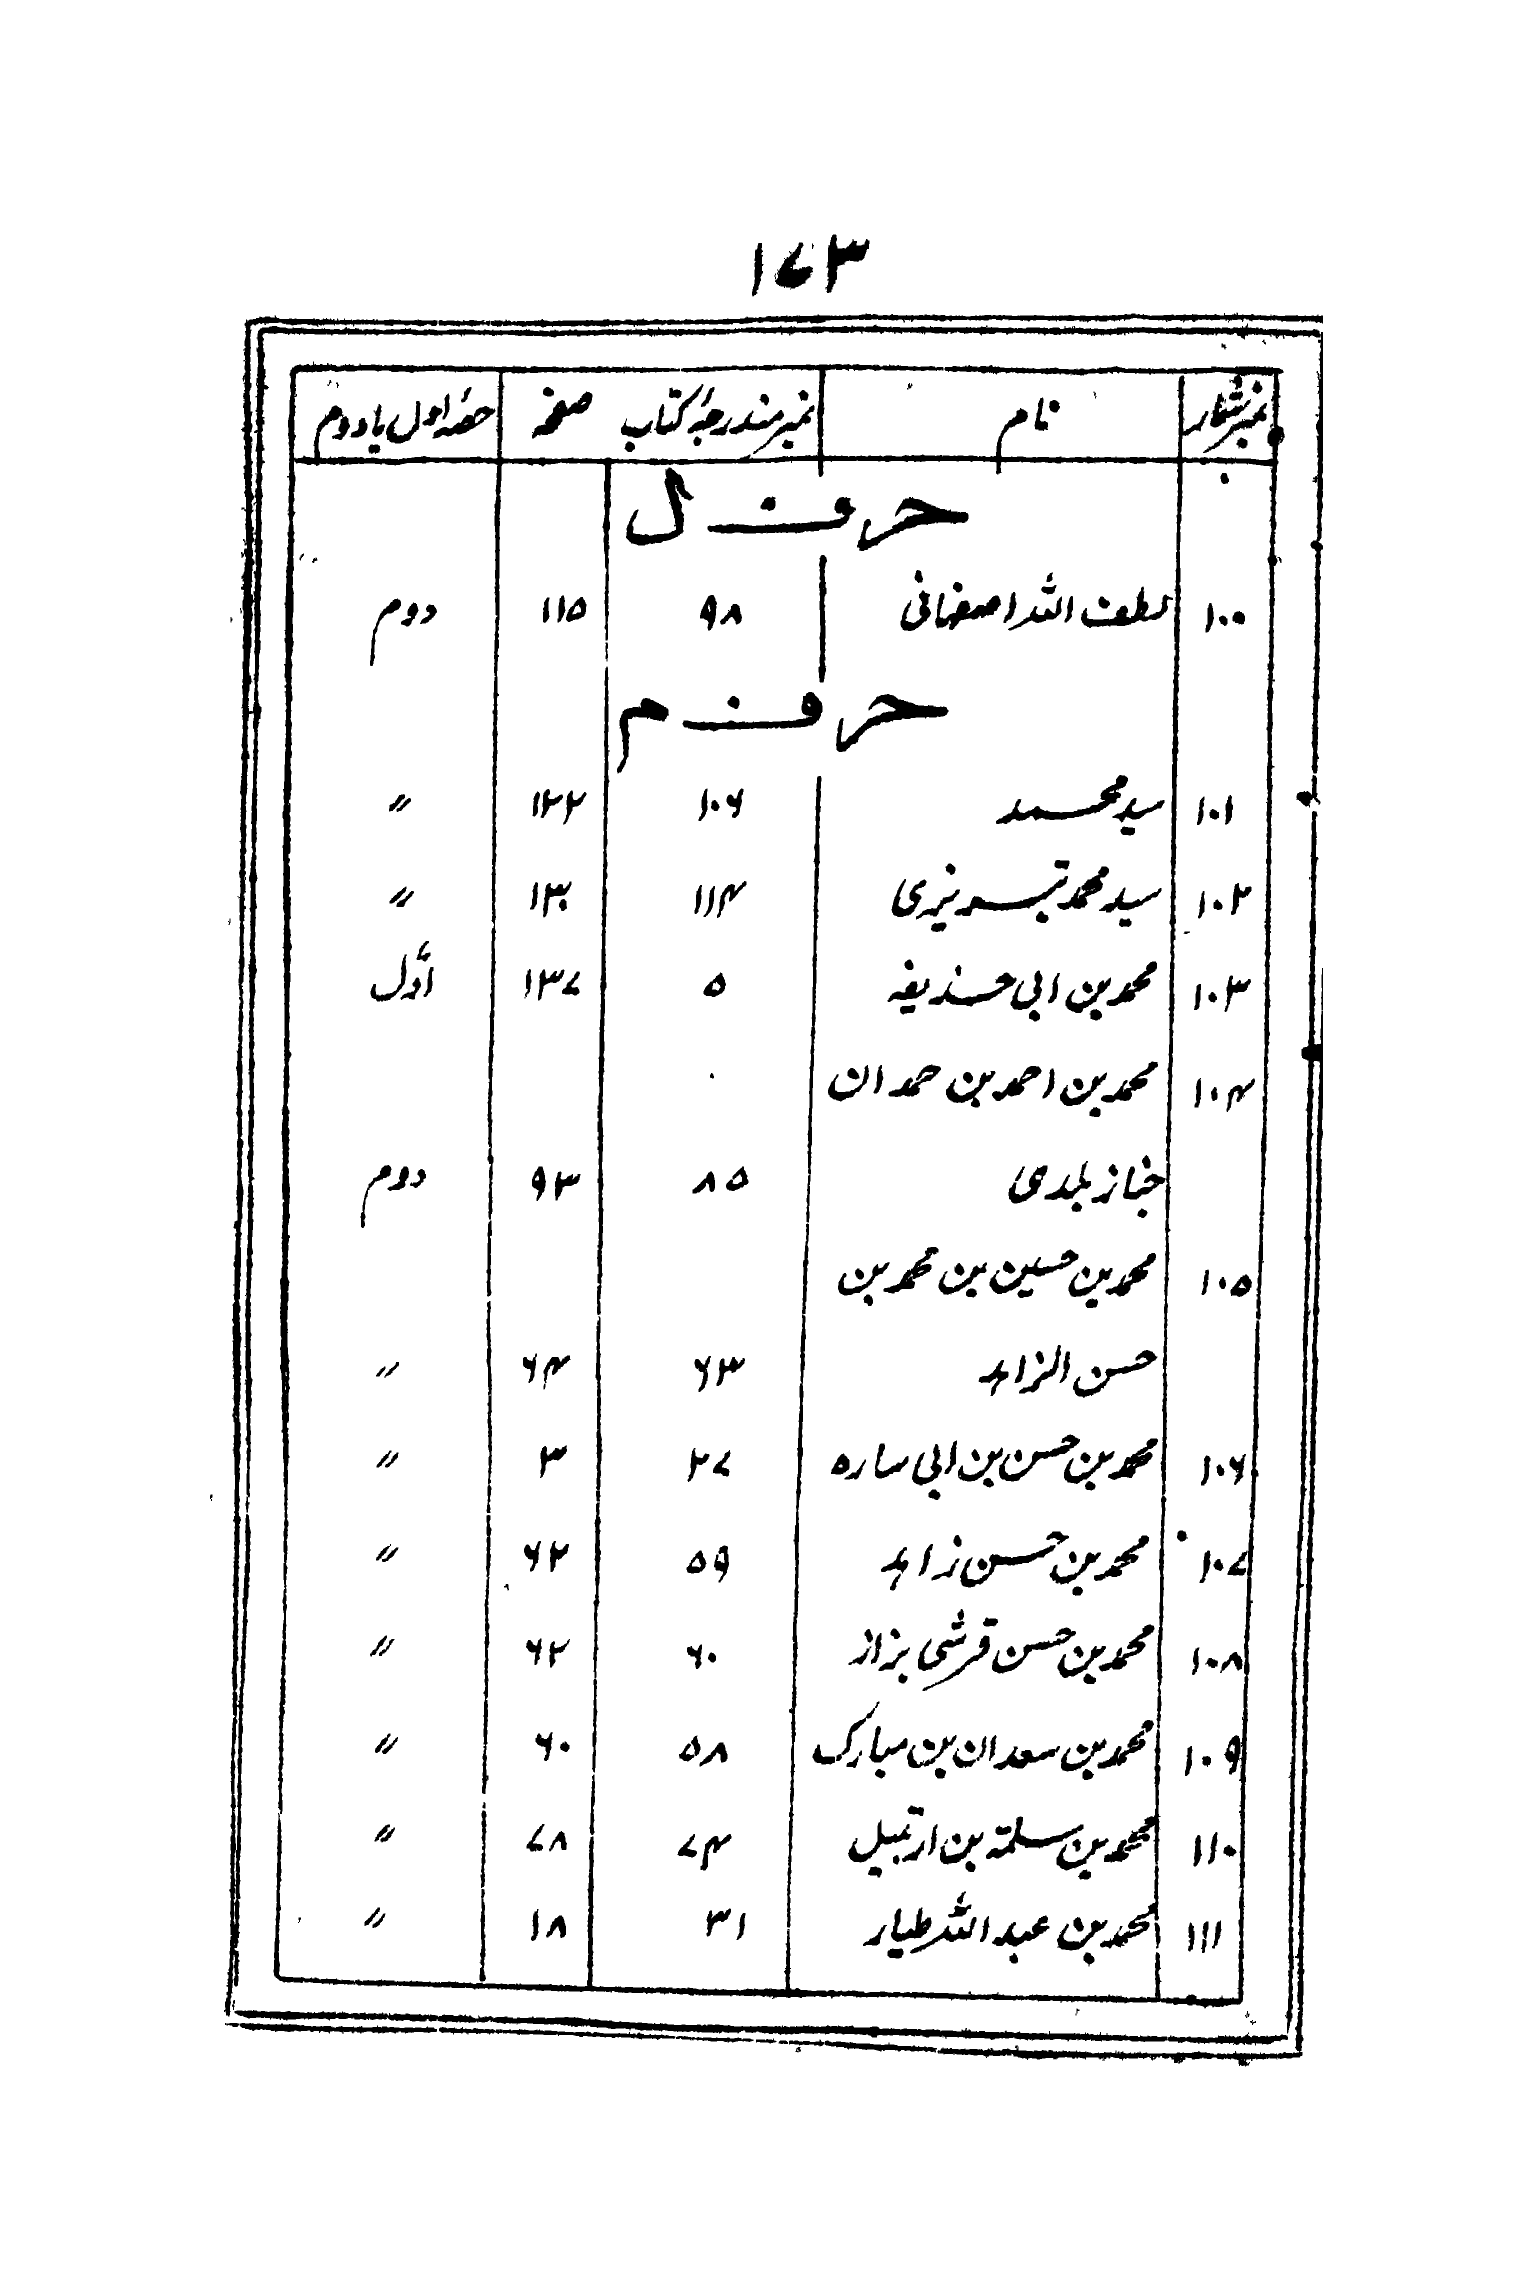 ۱۷۳
نمبرشمار نام نمبر مندرجۂ کتاب صفحہ حصّہ اول یا دوم
حرف ل
۱۰۰ لطف اللہ اصفہانی ۹۸ ۱۱۵ دوم
حرف م
۱۰۱ سید محمد ۱۰۶ ۱۲۲ ״
۱۰۲ سید محمد تبریزی ۱۱۴ ۱۳۰ ״
۱۰۳ محمد بن ابی حذیفہ ۵ ۱۳۷ اوّل
۱۰۴ محمد بن احمد بن حمدان
خباز بلدی ۸۵ ۹۳ دوم
۱۰۵ محمد بن حسین بن محمد بن
حسن الزاہد ۶۳ ۶۴ ״
۱۰۶ محمد بن حسن بن ابی سارہ ۲۷ ۳ ״
۱۰۷ محمد بن حسن زاہد ۵۹ ۶۲ ״
۱۰۸ محمد بن حسن قرشی بزاز ۶۰ ۶۲ ״
۱۰۹ محمد بن سعدان بن مبارک ۵۸ ۶۰ ״
۱۱۰ محمد بن سلمۃ بن ارتبیل ۷۴ ۷۸ ״
۱۱۱ محمد بن عبد اللہ طیار ۳۱ ۱۸ ״